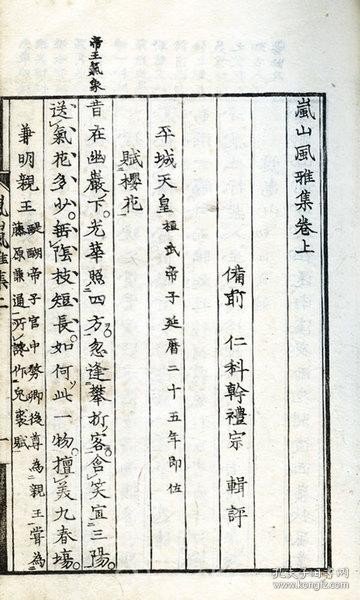 嵐山風雅集卷上
備前 仁科幹禮宗 輯評
平城天皇 桓武帝子延曆二十五年即位
賦櫻花
帝王氣象
昔在幽巖下。光華照四方。忽逢攀折客。含笑宜三陽。
送氣花多少。垂陰枝短長。如何此一物。擅美九春場。
兼明親王 醍醐帝子官中務卿後尊為親王嘗為
藤原兼通所譖作兔裘賦
嵐風雅集 一
孔夫子旧书网